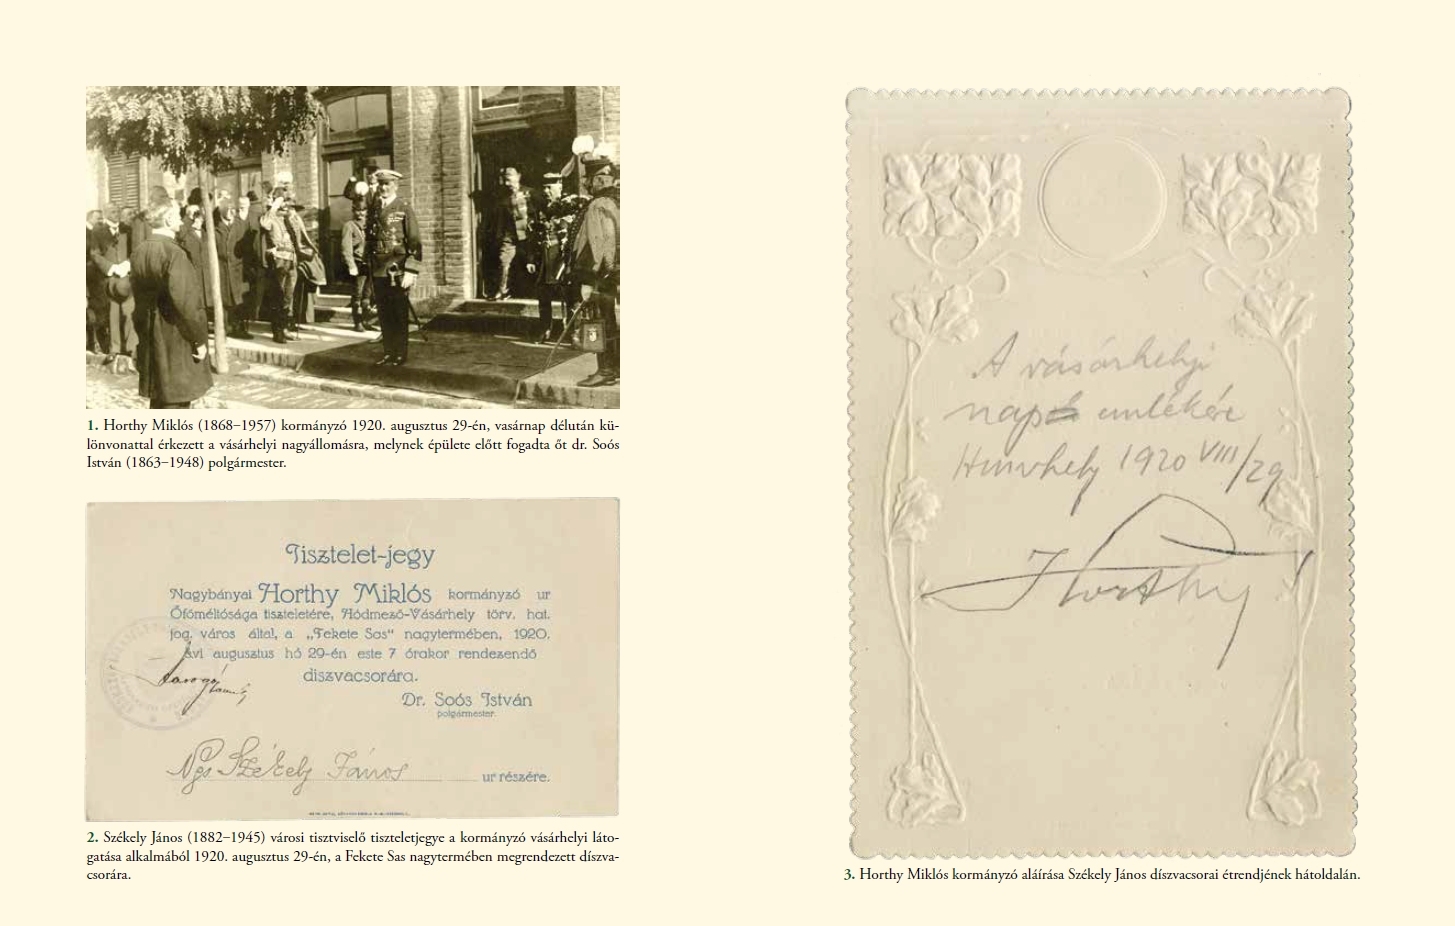 1. Horthy Miklós (1868–1957) kormányzó 1920. augusztus 29-én, vasárnap délután kü-
lönvonattal érkezett a vásárhelyi nagyállomásra, melynek épülete előtt fogadta őt dr. Soós
István (1863–1948) polgármester.
Tisztelet-jegy
Nagybányai Horthy Miklós kormányzó ur
Őfőméltósága tiszteletére, Hódmező-Vásárhely törv. hat.
jog. város által, a „Fekete Sas" nagytermében, 1920.
évi augusztus hó 29-én este 7 órakor rendezendő
diszvacsorára.
Dr. Soós István
polgármester.
Ngs Székely János ur részére.
2. Székely János (1882–1945) városi tisztviselő tiszteletjegye a kormányzó vásárhelyi láto-
gatása alkalmából 1920. augusztus 29-én, a Fekete Sas nagytermében megrendezett díszva-
csorára.
A vásárhelyi
nap emlékére
Hmvhely 1920 VIII/29
Horthy
3. Horthy Miklós kormányzó aláírása Székely János díszvacsorai étrendjének hátoldalán.